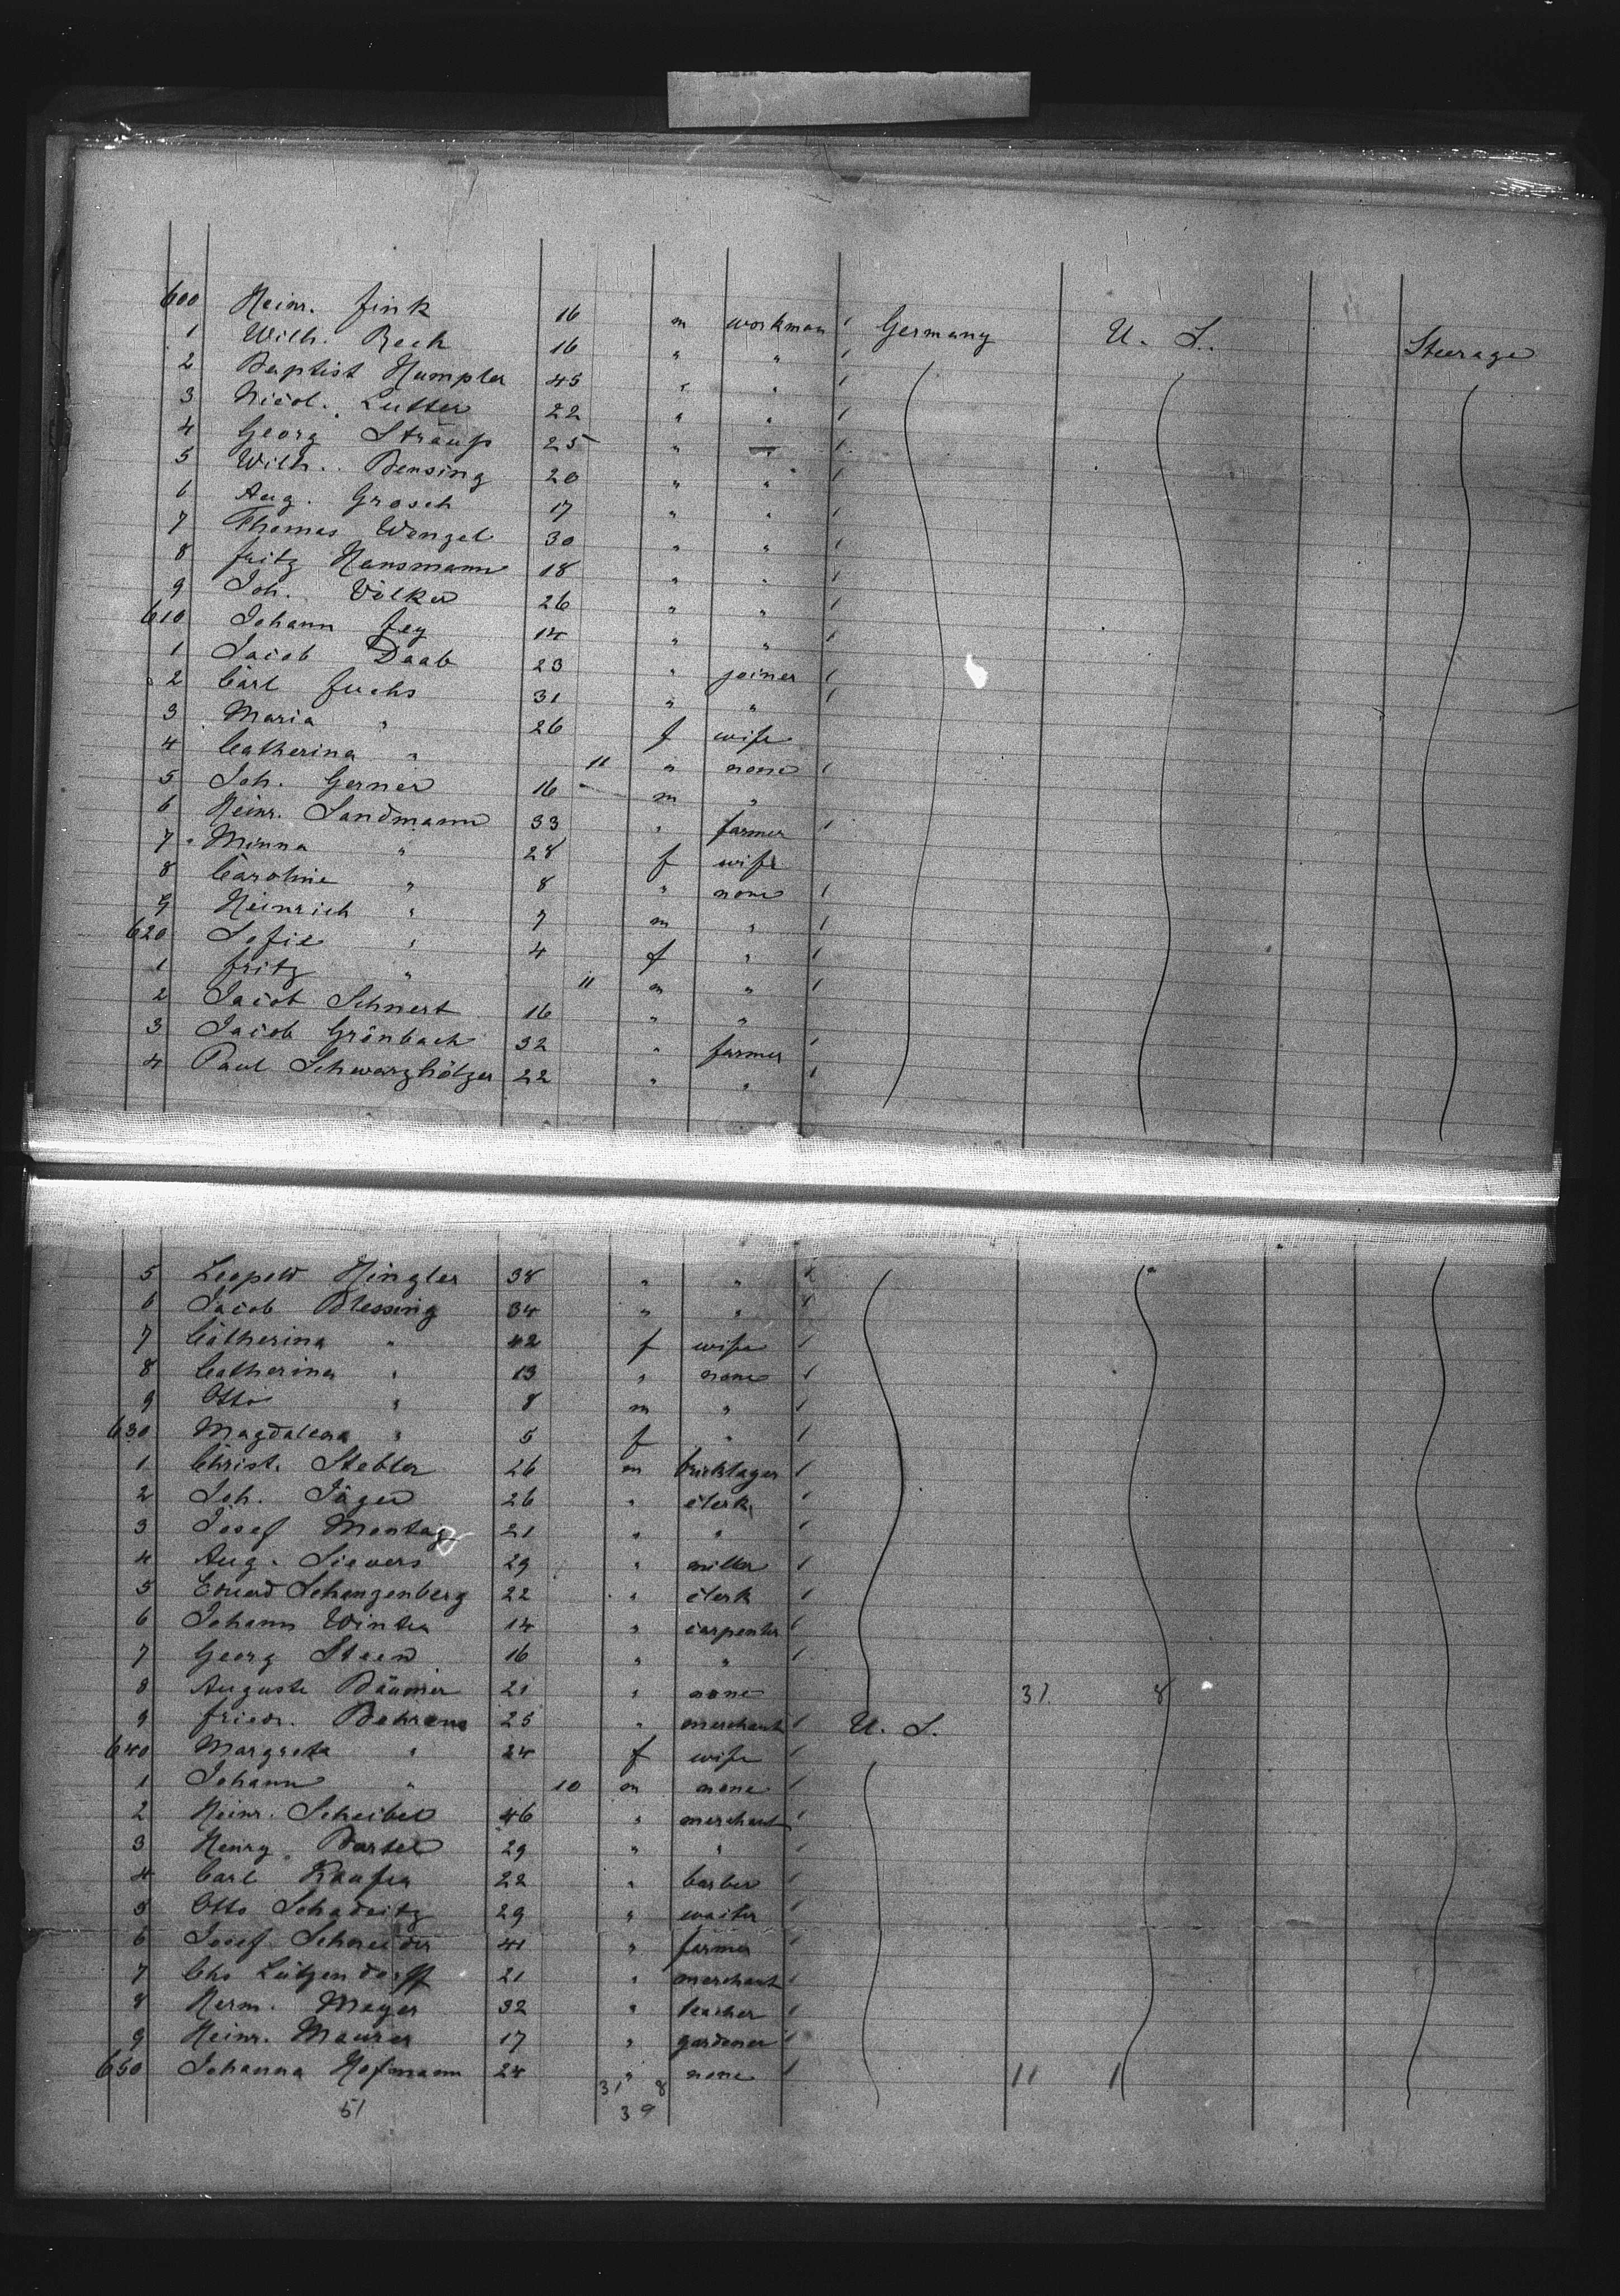 600 Heinr. Fink 16 m workman 1 Germany U. S. Steerage
1 Wilh. Beck 16 " " 1
2 Baptist Humpler 45 " " 1
3 Nicol. Lutter 22 " " 1
4 Georg Strauß 25 " " 1
5 Wilh. Bensing 20 " " 1
6 Aug. Grosch 17 " " 1
7 Thomas Wengel 30 " " 1
8 Fritz Hansmann 18 " " 1
9 Joh. Völker 26 " " 1
610 Johann Fey 14 " " 1
1 Jacob Daab 23 " joiner 1
2 Carl Fuchs 31 " " 1
3 Maria " 26 f wife
4 Catherina " 11 " none 1
5 Joh. Gerner 16 m "
6 Heinr. Landmann 33 " farmer 1
7 Minna " 28 f wife
8 Caroline " 8 " none 1
9 Heinrich " 7 m " 1
620 Sofie " 4 f " 1
1 Fritz " 11 m " 1
2 Jacob Schnert 16 " "
3 Jacob Grönbach 32 " farmer 1
4 Paul Schwarzhölzer 22 " " 1
5 Leopold Hingler 38 " " 1
6 Jacob Blessing 34 " " 1
7 Catherina " 42 f wife 1
8 Catherina " 13 " none 1
9 Otto " 8 m " 1
630 Magdalena " 5 f " 1
1 Christ. Stebler 26 m bricklayer 1
2 Joh. Jäger 26 " clerk 1
3 Josef Montag 21 " " 1
4 Aug. Sievers 29 " miller 1
5 Eduard Schangenberg 22 " clerk 1
6 Johann Winter 14 " carpenter 1
7 Georg Steen 16 " " 1
8 Auguste Bäumer 21 " none 31 8
9 Friedr. Behrens 25 " merchant 1 U. S.
640 Margreta " 24 f wife 1
1 Johann " 10 m none 1
2 Heinr. Scheibel 46 " merchant 1
3 Henry Bartel 29 " " 1
4 Carl 22 " barber 1
5 Otto Schadeitz 29 " waiter 1
6 Josef Schneider 41 " farmer 1
7 Chs Lützendorff 21 " merchant 1
8 Herm. Meyer 32 " teacher 1
9 Heinr. Maurer 17 " gardener 1
650 Johanna Hofmann 24 " none 1 11 1
31 8
51 39